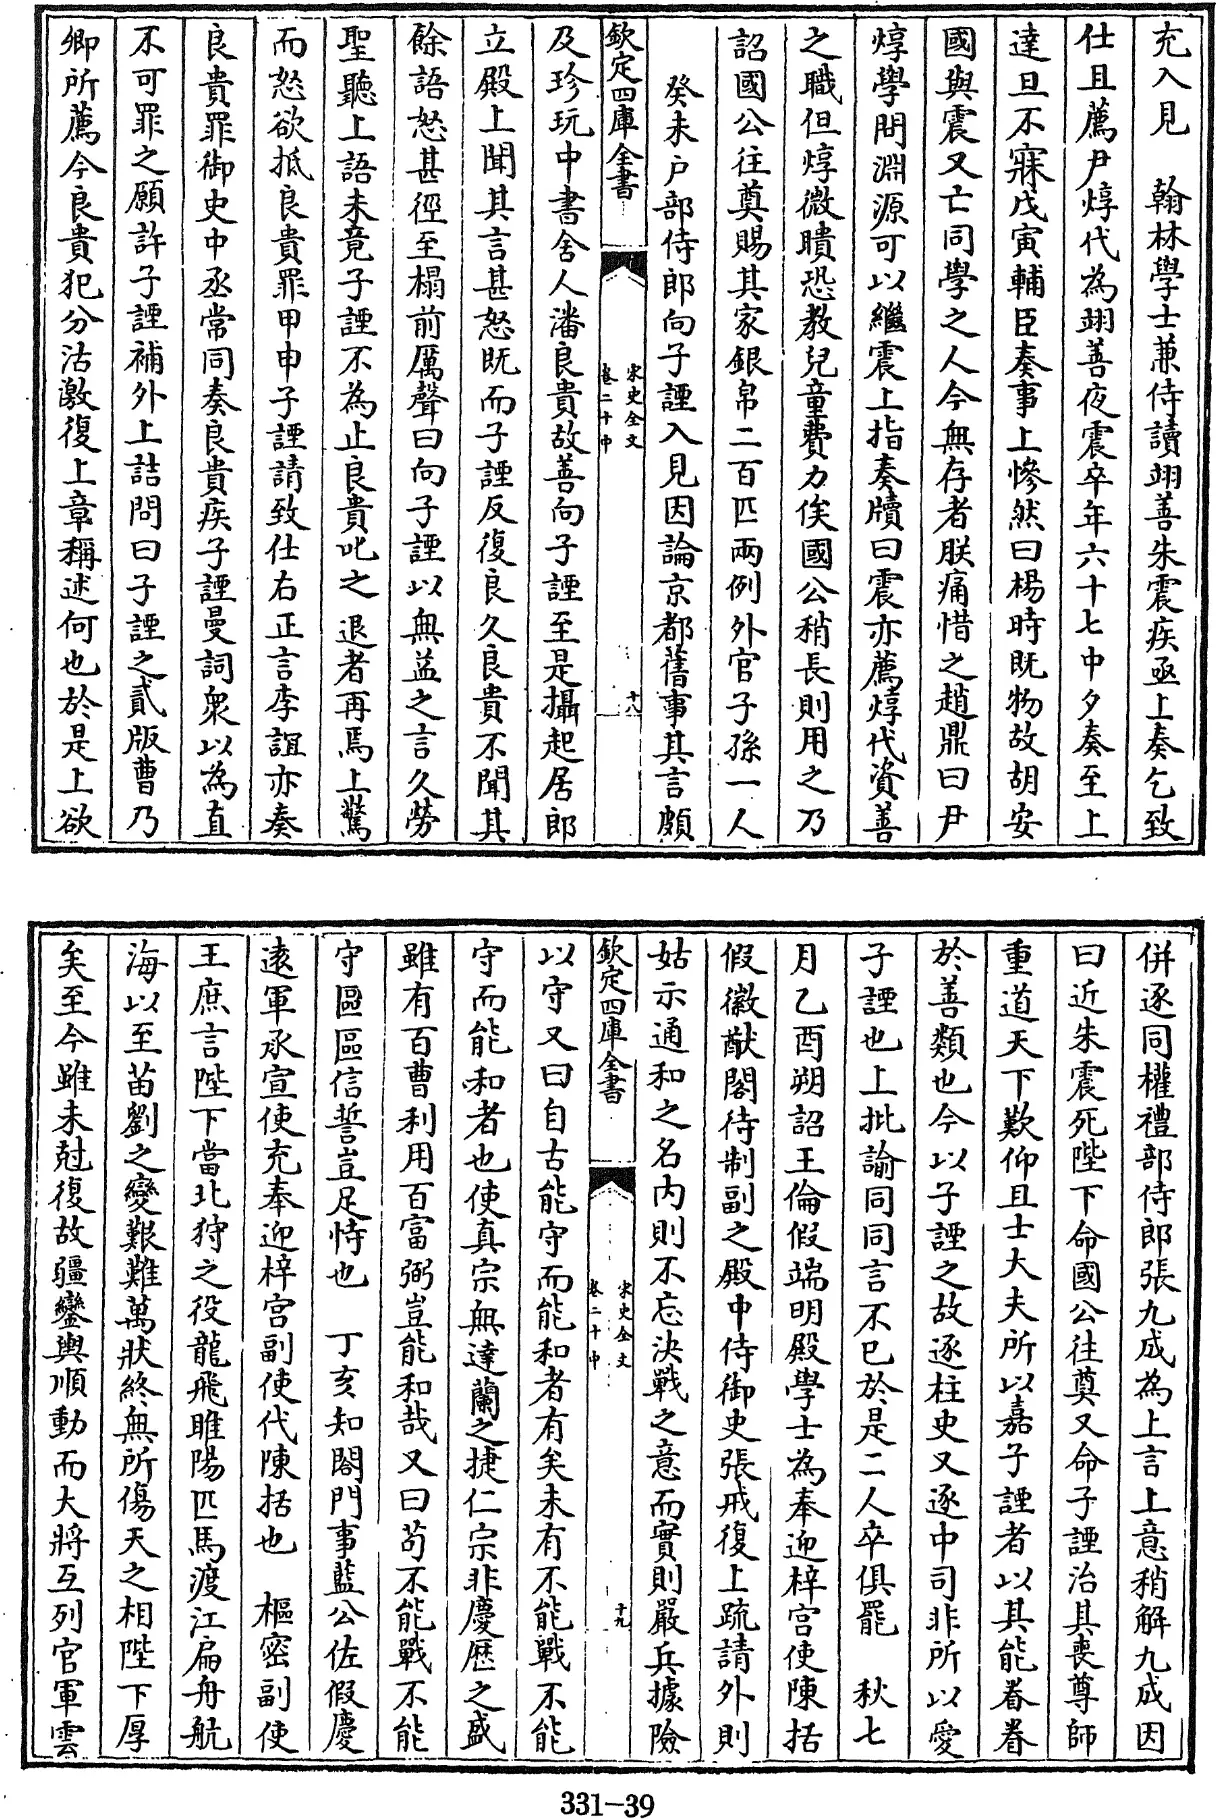 充入見　翰林學士兼侍讀翊善朱震疾亟上奏乞致
仕且薦尹焞代為翊善夜震卒年六十七中夕奏至上
達旦不寐戊寅輔臣奏事上慘然曰楊時既物故胡安
國與震又亡同學之人今無存者朕痛惜之趙鼎曰尹
焞學問淵源可以繼震上指奏牘曰震亦薦焞代資善
之職但焞微聵恐教兒童費力俟國公稍長則用之乃
詔國公往奠賜其家銀帛二百匹兩例外官子孫一人
癸未戶部侍郎向子諲入見因論京都舊事其言頗
欽定四庫全書
宋史全文
卷二十中
十八
及珍玩中書舍人潘良貴故善向子諲至是攝起居郎
立殿上聞其言甚怒既而子諲反復良久良貴不聞其
餘語怒甚徑至榻前厲聲曰向子諲以無益之言久勞
聖聽上語未竟子諲不為止良貴叱之退者再焉上驚
而怒欲抵良貴罪甲申子諲請致仕右正言李誼亦奏
良貴罪御史中丞常同奏良貴疾子諲曼詞眾以為直
不可罪之願許子諲補外上詰問曰子諲之貳版曹乃
卿所薦今良貴犯分沽激復上章稱述何也於是上欲
併逐同權禮部侍郎張九成為上言上意稍解九成因
曰近朱震死陛下命國公往奠又命子諲治其喪尊師
重道天下歎仰且士大夫所以嘉子諲者以其能眷眷
於善類也今以子諲之故逐柱史又逐中司非所以愛
子諲也上批諭同同言不已於是二人卒俱罷　秋七
月乙酉朔詔王倫假端明殿學士為奉迎梓宮使陳括
假徽猷閣待制副之殿中侍御史張戒復上疏請外則
姑示通和之名內則不忘決戰之意而實則嚴兵據險
欽定四庫全書
宋史全文
卷二十中
十九
以守又曰自古能守而能和者有矣未有不能戰不能
守而能和者也使真宗無達蘭之捷仁宗非慶歷之盛
雖有百曹利用百富弼豈能和哉又曰苟不能戰不能
守區區信誓豈足恃也　丁亥知閤門事藍公佐假慶
遠軍承宣使充奉迎梓宮副使代陳括也　樞密副使
王庶言陛下當北狩之役龍飛睢陽匹馬渡江扁舟航
海以至苗劉之變艱難萬狀終無所傷天之相陛下厚
矣至今雖未尅復故疆鑾輿順動而大將互列官軍雲
331-39